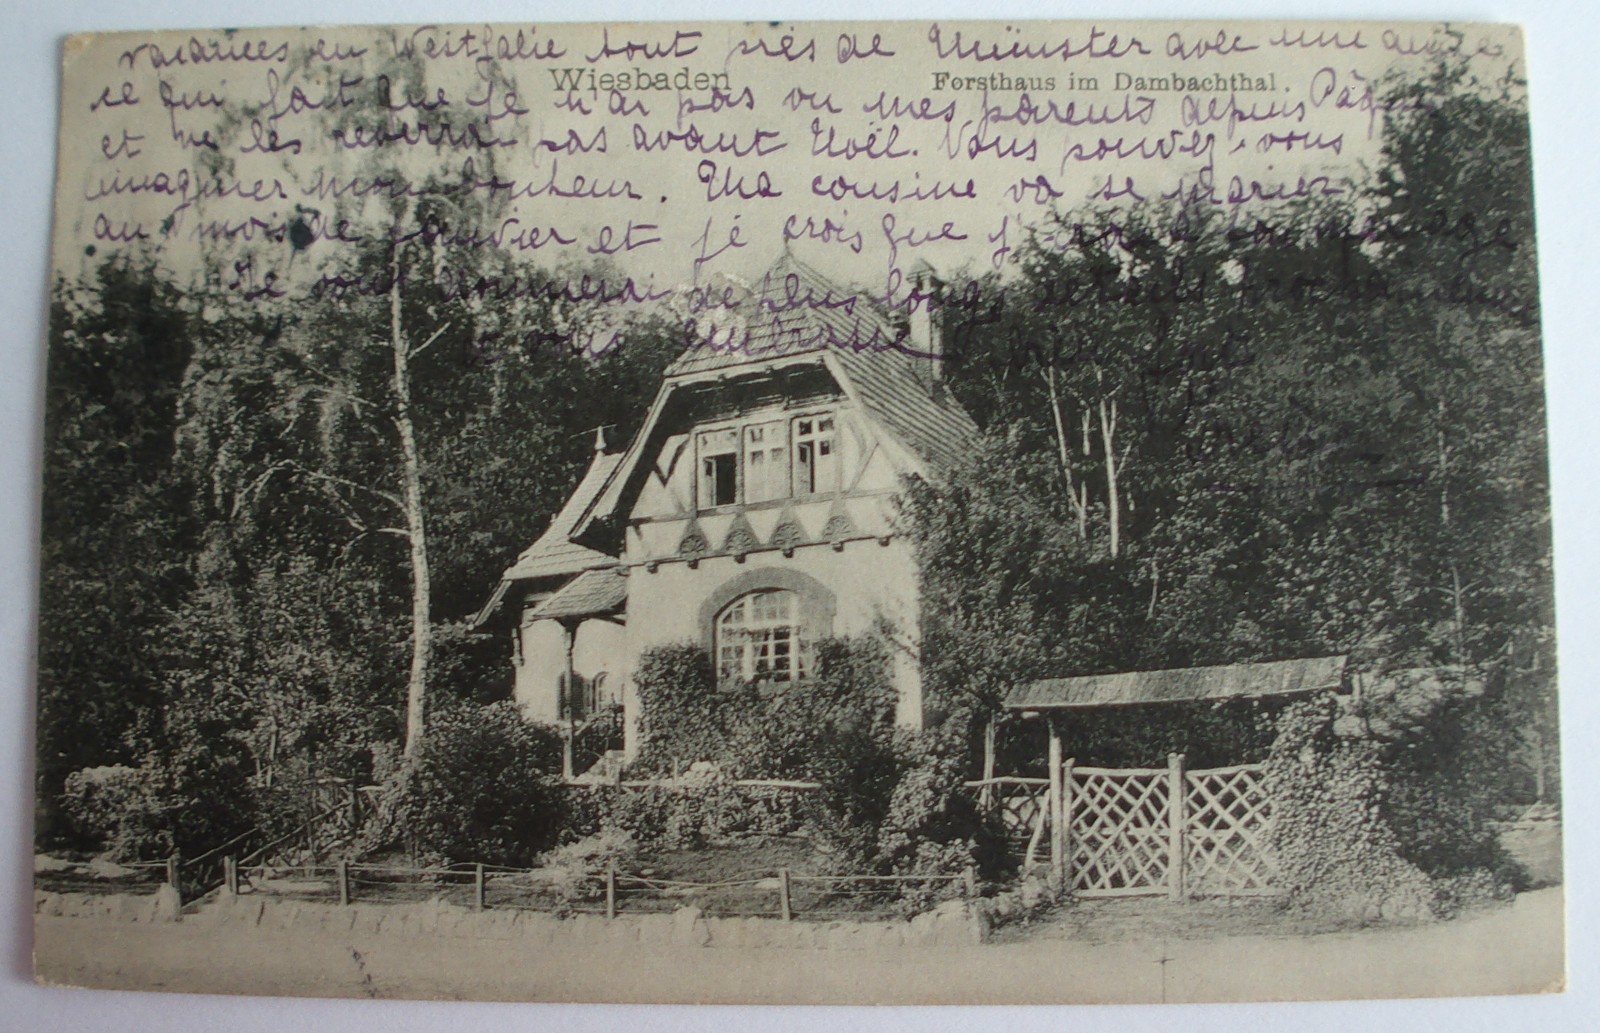 vacances en Westfalie tout près de Münster avec une
Wiesbaden
Forsthaus im Dambachthal.
ce qui fait que je n'ai pas vu mes parents depuis Pâques
et ne les reverrai pas avant Noël. Vous pouvez-vous
imaginer mon bonheur. Ma cousine va se marier
au mois de janvier et je crois que j'irai à son mariage
Je vous donnerai de plus longs détails prochainement
vous embrasse